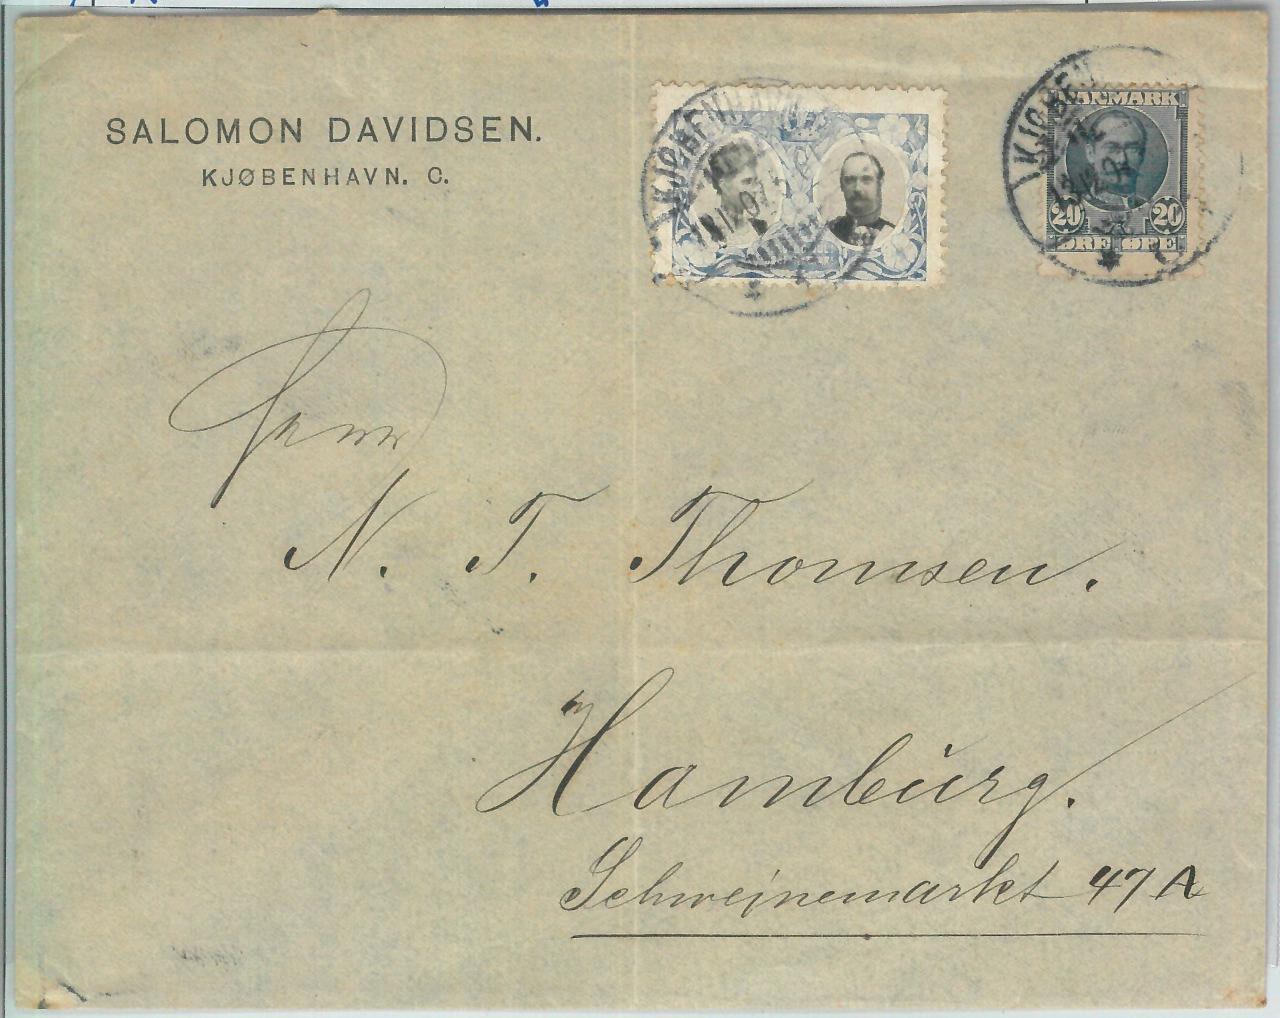 SALOMON DAVIDSEN.
KJØBENHAVN. C.
KJØBENHAVN
KJØBENH
DANMARK
20 20
ØRE ØRE
Herrn
N. T. Thomsen.
Hamburg.
Schweinemarkt 47 A